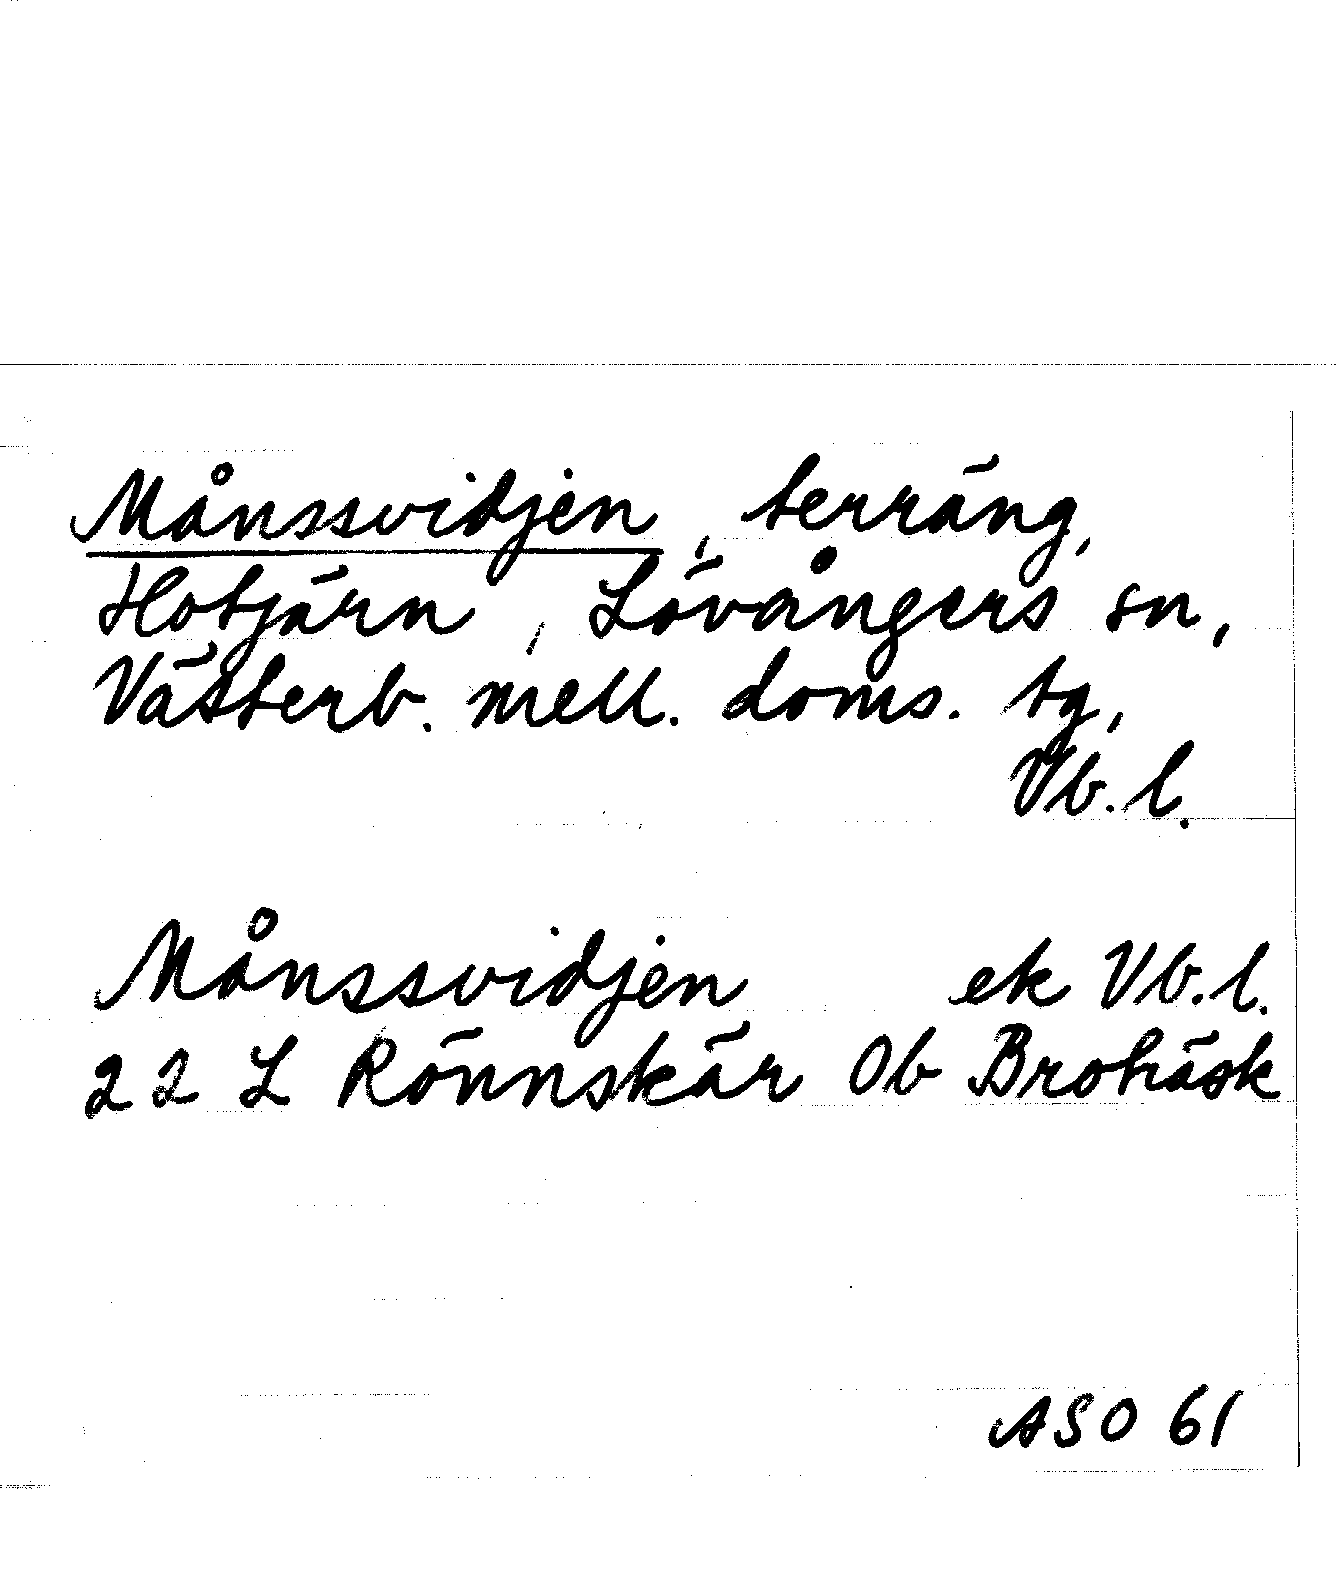 Månssvidjen, terräng,
Hotjärn, Lövångers sn,
Västerb. mell. doms. tg,
Vb. l.
Månssvidjen ek Vb. l.
22 L Rönnskär Ob Broträsk
ASO 61